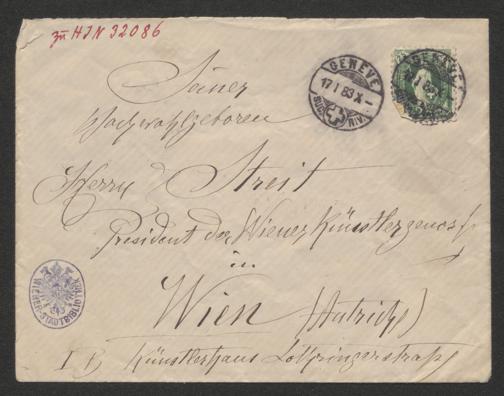 zu HIN 32086
GENEVE
17 I 83 X-
SUCC
Seiner
Hochwohlgeboren
Herrn Streit
President der Wiener Künstlergenoss
in
Wien (Autriche)
WIENER-STADTBIBLIOTHEK
I B Künstlerhaus Lothringerstraße